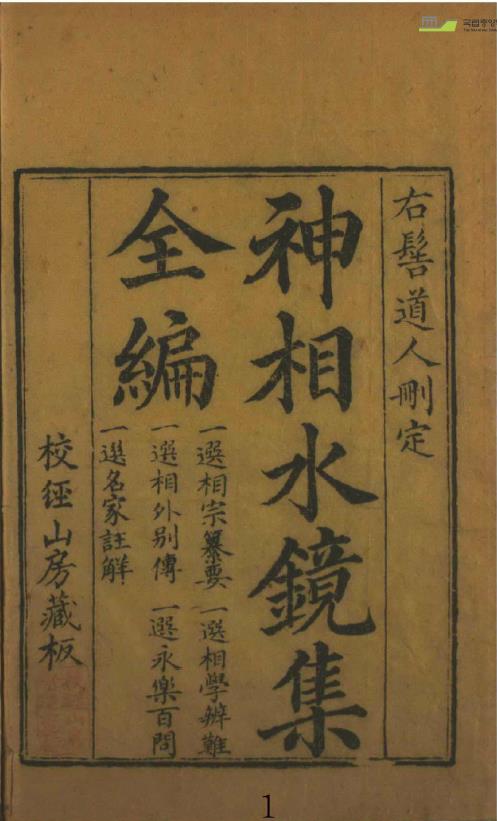 右髻道人刪定
神相水鏡集
全編
一選相宗纂要 一選相學辨難
一選相外别傳 一選永樂百問
一選名家註解
校經山房藏板
1